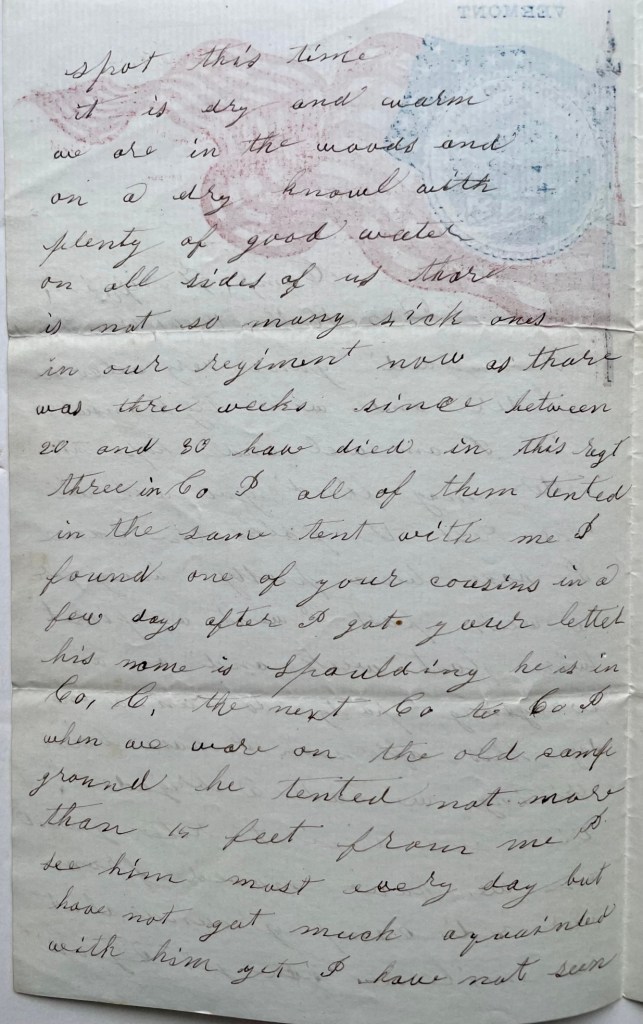 VERMONT
spot this time
it is dry and warm
we are in the woods and
on a dry knowl with
plenty of good water
on all sides of us thare
is not so many sick ones
in our regiment now as thare
was three weeks since between
20 and 30 have died in this regt
three in Co I all of them tented
in the same tent with me I
found one of your cousins in a
few days after I got your letter
his name is Spaulding he is in
Co, C, the next Co to Co I
when we ware on the old camp
ground he tented not more
than 15 feet from me I
see him most every day but
have not got much aquainted
with him yet I have not seen